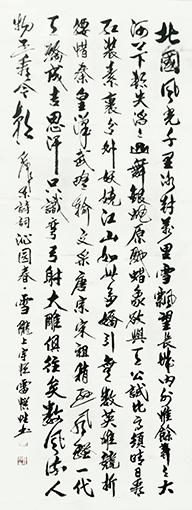 北國風光千里冰封萬里雪飄望長城內外惟餘莽莽大
河上下頓失滔滔山舞銀蛇原馳蠟象欲與天公試比高須晴日看
紅裝素裹分外妖嬈江山如此多嬌引無數英雄競折
腰惜秦皇漢武略輸文采唐宗宋祖稍遜風騷一代
天驕成吉思汗只識彎弓射大雕俱往矣數風流人
物還看今朝
詩詞沁園春雪